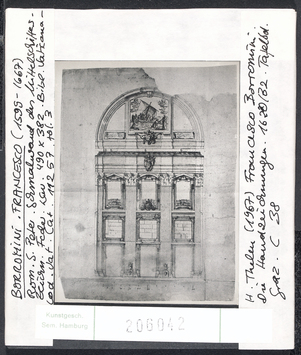 BORROMINI FRANCESCO (1599-1667)
Rom. S. Peter. Schmalwand des Mittelschiffes.
490 x 382 Bibl. Vaticana
Cod. Vat. Lat. 11257 fol. 3
H. Thelen (1967) Francesco Borromini
Die Handzeichnungen. 1620/32. Tafelbd.
Graz. C 38
Kunstgesch.
Sem. Hamburg
206042